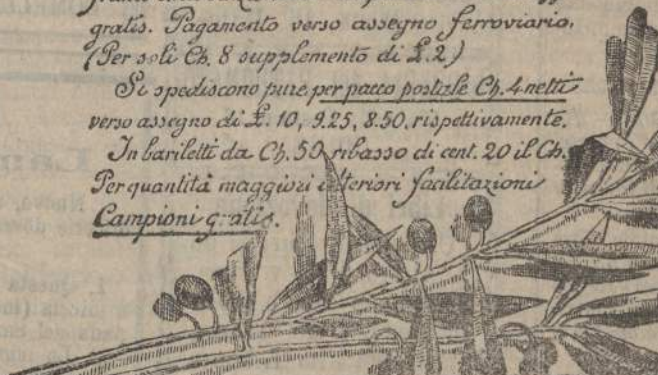 gratis. Pagamento verso assegno ferroviario.
(Per soli Ch. 8 supplemento di £.2)
Si spediscono pure per pacco postale Ch. 4 netti
verso assegno di £. 10, 9.25, 8.50, rispettivamente.
In bariletti da Ch. 50 ribasso di cent. 20 il Ch.
Per quantità maggiori ulteriori facilitazioni
Campioni gratis.